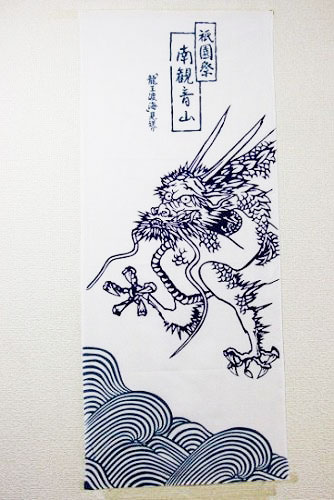 祇園祭
南観音山
龍王渡海